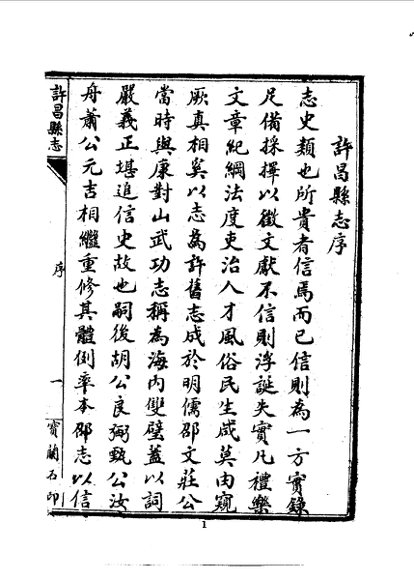 許昌縣志序
志史類也所貴者信焉而已信則為一方實錄
足備採擇以徵文獻不信則浮誕失實凡禮樂
文章紀綱法度吏治人才風俗民生咸莫由窺
厥真相奚以志為許舊志成於明儒邵文莊公
當時與康對山武功志稱為海內雙璧蓋以詞
嚴義正堪追信史故也嗣後胡公良弼甄公汝
舟蕭公元吉相繼重修其體例率本邵志以信
許昌縣志
序
一
寶蘭石印
1